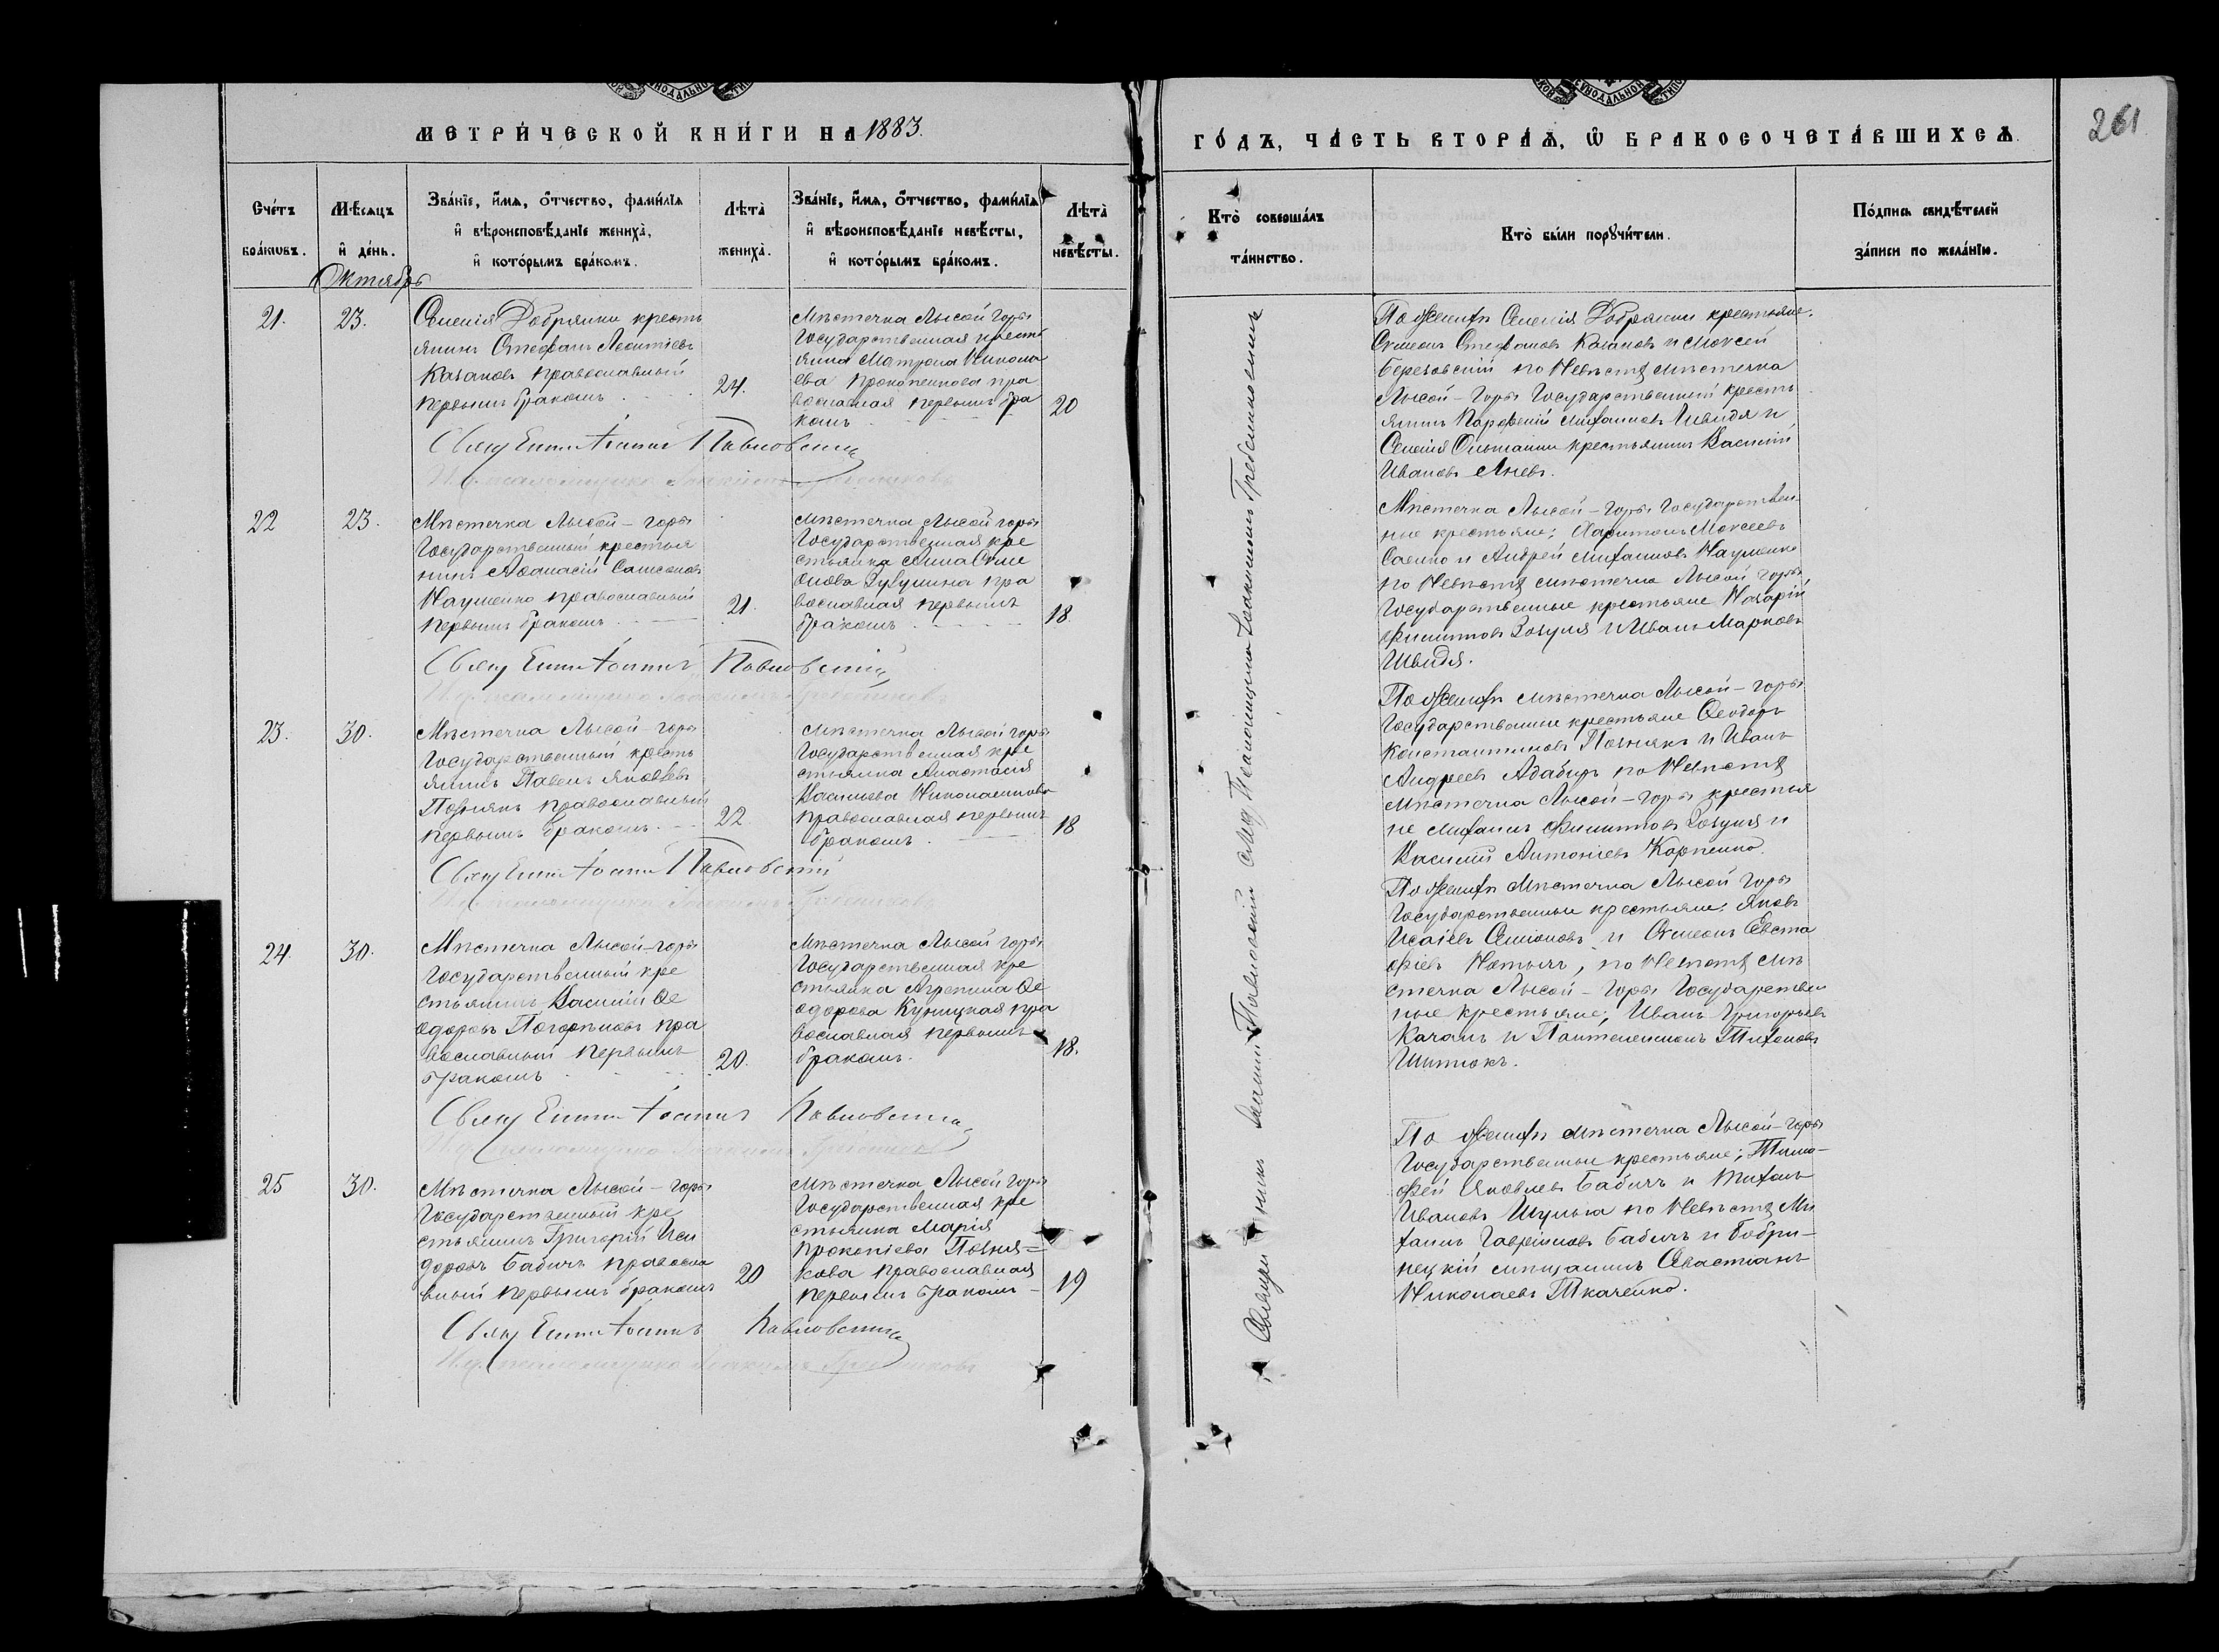 МЕТРИЧЕСКОЙ КНИГИ НА 1883.
ГОДЪ, ЧАСТЬ ВТОРАѦ, Ѡ БРАКОСОЧЕТАВШИХСѦ.
261
Счетъ браковъ.
Мѣсяцъ и день.
Званіе, имя, отчество, фамилія
и вѣроисповѣданіе жениха,
и которымъ бракомъ.
Лѣта жениха.
Званіе, имя, отчество, фамилія
и вѣроисповѣданіе невѣсты,
и которымъ бракомъ.
Лѣта невѣсты.
Кто совершалъ
таинство.
Кто были поручители.
Подпись свидѣтелей
записи по желанію.
Октябрь
21.
23.
Селенія Добрянки кресть
янинъ Стефанъ Леонтіевъ
Казаковъ православный
первымъ бракомъ
24.
Мѣстечка Лысой Горы
Государственная кресть
янка Матрона Никола
ева Прокопенкова пра
вославная первымъ бра
комъ
20
По женихѣ Селенія Добрянки крестьяне:
Симеонъ Стефановъ Казаковъ и Моисей
Березовскій по Невѣстѣ мѣстечка
Лысой-Горы Государственный кресть
янинъ Парфеній Михаиловъ Швидя и
Селенія Ольшанки крестьянинъ Василій
Ивановъ
Свящ Іоаннъ Павловскій
22
23.
Мѣстечка Лысой-горы
Государственный крестья
нинъ Афанасій Самсоновъ
Науменко православный
первымъ бракомъ
21.
Мѣстечка Лысой горы
Государственная кре
стьянка Анна Симе
онова Зузулина пра
вославная первымъ
бракомъ
18
Мѣстечка Лысой-Горы Государствен-
ные крестьяне; Харитонъ Моисеевъ
Саенко и Андрей Михаиловъ Науменко
по Невѣстѣ мѣстечка Лысой горы
Государственные крестьяне Назарій
Филиповъ Зозуля и Иванъ Марковъ
Швидя.
Свящ Іоаннъ Павловскій
23.
30.
Мѣстечка Лысой-горы
Государственный кресть
янинъ Павелъ Яковлевъ
Познякъ православный
первымъ бракомъ.
22
Мѣстечка Лысой горы
Государственная кре
стьянка Анастасія
Васильева Николаенкова
православная первымъ
бракомъ.
18
По женихѣ мѣстечка Лысой-горы
Государственные крестьяне Феодоръ
Константиновъ Познякъ и Иванъ
Андреевъ Адабиръ по Невѣстѣ
мѣстечка Лысой-горы крестья
не Михаилъ Филиповъ Зозуля и
Василій Антоніевъ Карпенко.
Свящ Іоаннъ Павловскій
24.
30.
Мѣстечка Лысой-горы
Государственный кре
стьянинъ Василій Фе
одоровъ Погорѣловъ пра
вославный первымъ
бракомъ
20.
Мѣстечка Лысой горы
Государственная кре
стьянка Агрепина Фе
одорова Куницкая пра
вославная первымъ
бракомъ.
18.
По женихѣ Мѣстечка Лысой Горы
Государственные крестьяне; Яковъ
Исаіевъ Семіоновъ и Симеонъ Евста
фіевъ по Невѣстѣ мѣ
стечка Лысой-Горы Государствен
ные крестьяне; Иванъ Григорьевъ
Качанъ и Пантелеимонъ Тихоновъ
Свящ Іоаннъ Павловскій
25
30.
Мѣстечка Лысой-горы
Государственный кре
стьянинъ Григорій Иси
доровъ Бабичъ правосла
вный первымъ бракомъ
20
Мѣстечка Лысой горы
Государственная кре
стьянка Марія
Прокопіева Позня=
кова православная
первымъ бракомъ
19
По женихѣ мѣстечка Лысой-горы
Государственные крестьяне; Тимо-
фей Яковлевъ Бабичъ и Тихонъ
Ивановъ Шульга по Невѣстѣ Ми
хаилъ Гавріиловъ Бабичъ и Бобри-
нецкій мѣщанинъ Севастіанъ
Николаевъ Ткаченко.
Свящ Іоаннъ Павловскій
Священникъ Іоаннъ Павловскій